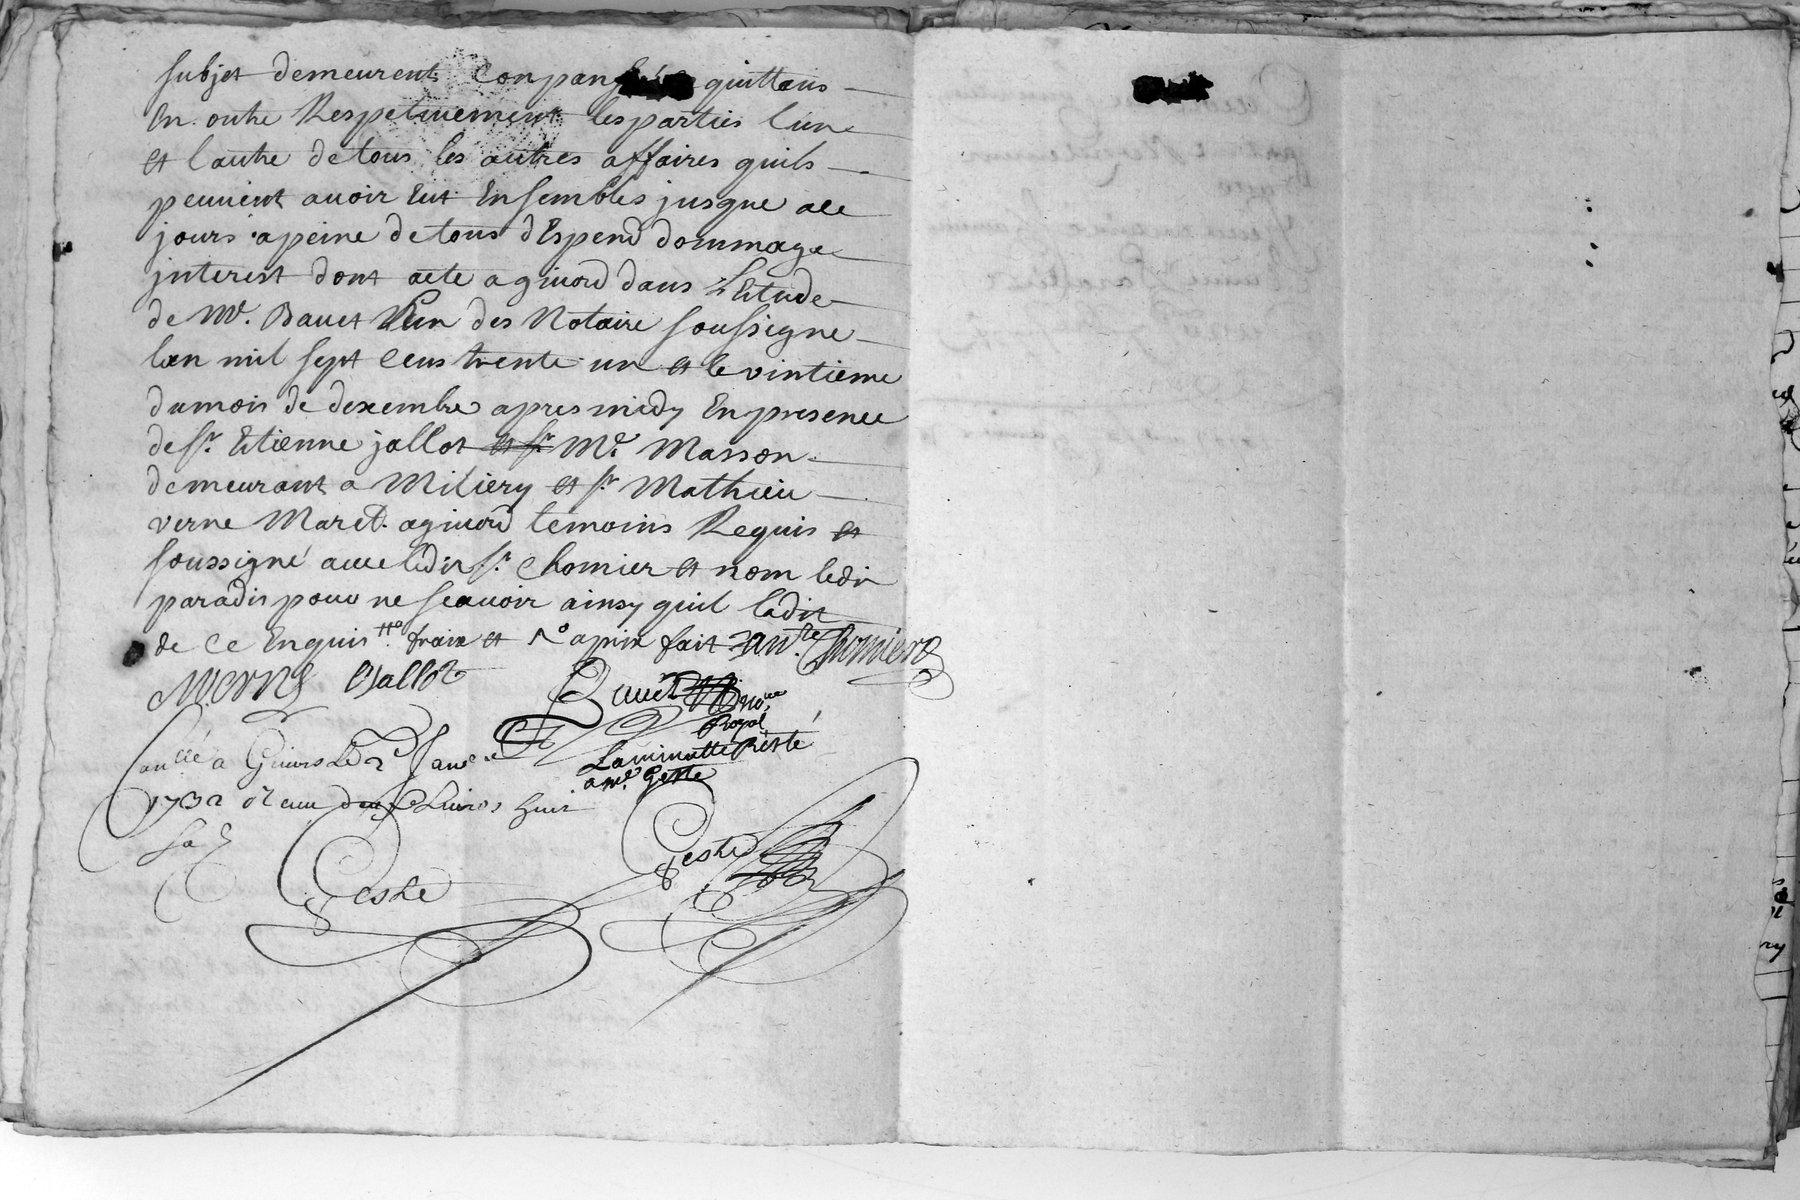 subjet demeurent Conpan quittans
En outre Respetiuement les parties l'un
et l'autre de tous les autres affaires quils
peuuent auoir Eut Ensembles jusque a ce
jours a peine de tous dEspend dommage
interest dont acte a giuord dans LEtude
de Me. Bauet L'un des Notaire soussigne
lan mil sept Cens trente un et le vintieme
du mois de dexembre apres midy En presence
de sr. Etienne jallot et sr. Me. Masson
demeurant a Miliery et sr. Mathieu
verne Maret. a giuord temoins Requis et
soussigné auec ledit sr. Chomier et nom ledit
paradis pour ne scauoir ainsy quil la dit
de Ce Enquis fraix et apix fait Ant. Chomier
M. verne Jallot
Bauet no.re
Royal
La minutte Reste
a me. Geste
a Giuors Le 2e Janer.
1732 Receu deux Liures huit
Geste
Geste